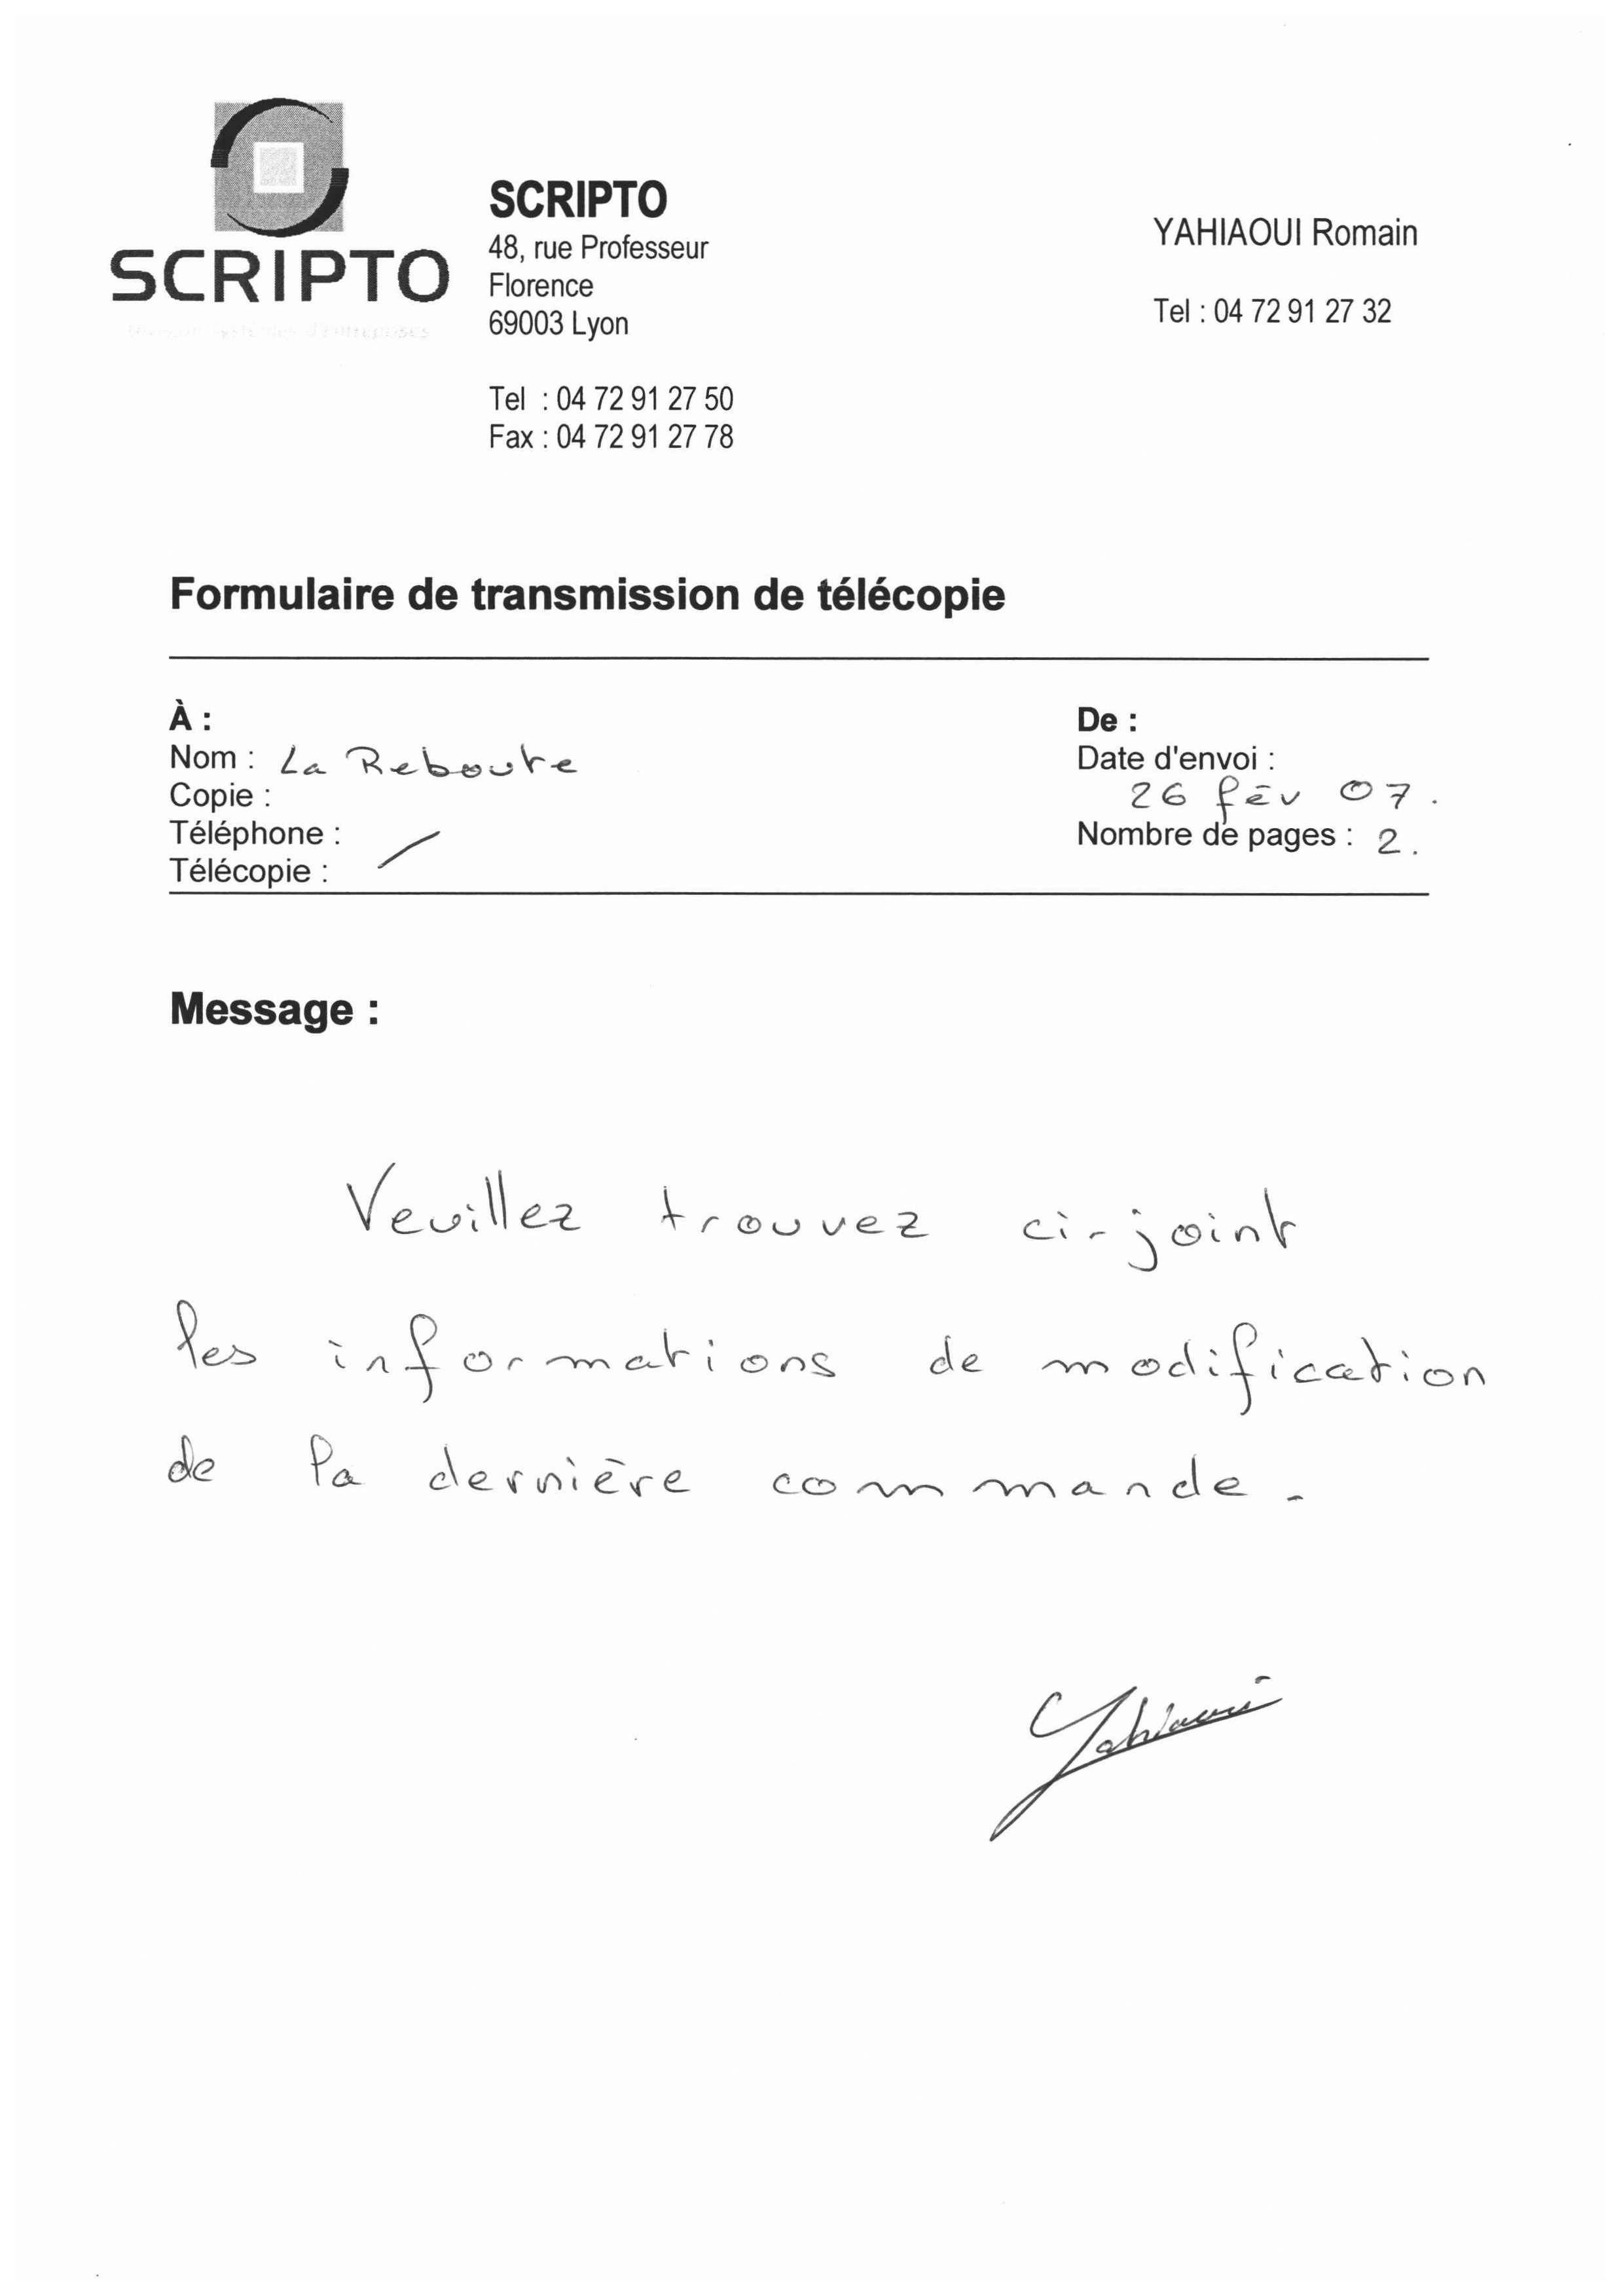 SCRIPTO
SCRIPTO
48, rue Professeur
Florence
69003 Lyon
Tel : 04 72 91 27 50
Fax : 04 72 91 27 78
YAHIAOUI Romain
Tel : 04 72 91 27 32
Formulaire de transmission de télécopie
À :
Nom : La Reboute
Copie :
Téléphone :
Télécopie :
De :
Date d'envoi :
26 fév 07.
Nombre de pages : 2.
Message :
Veuillez trouvez ci-joint
les informations de modification
de la dernière commande.
Yahiaoui